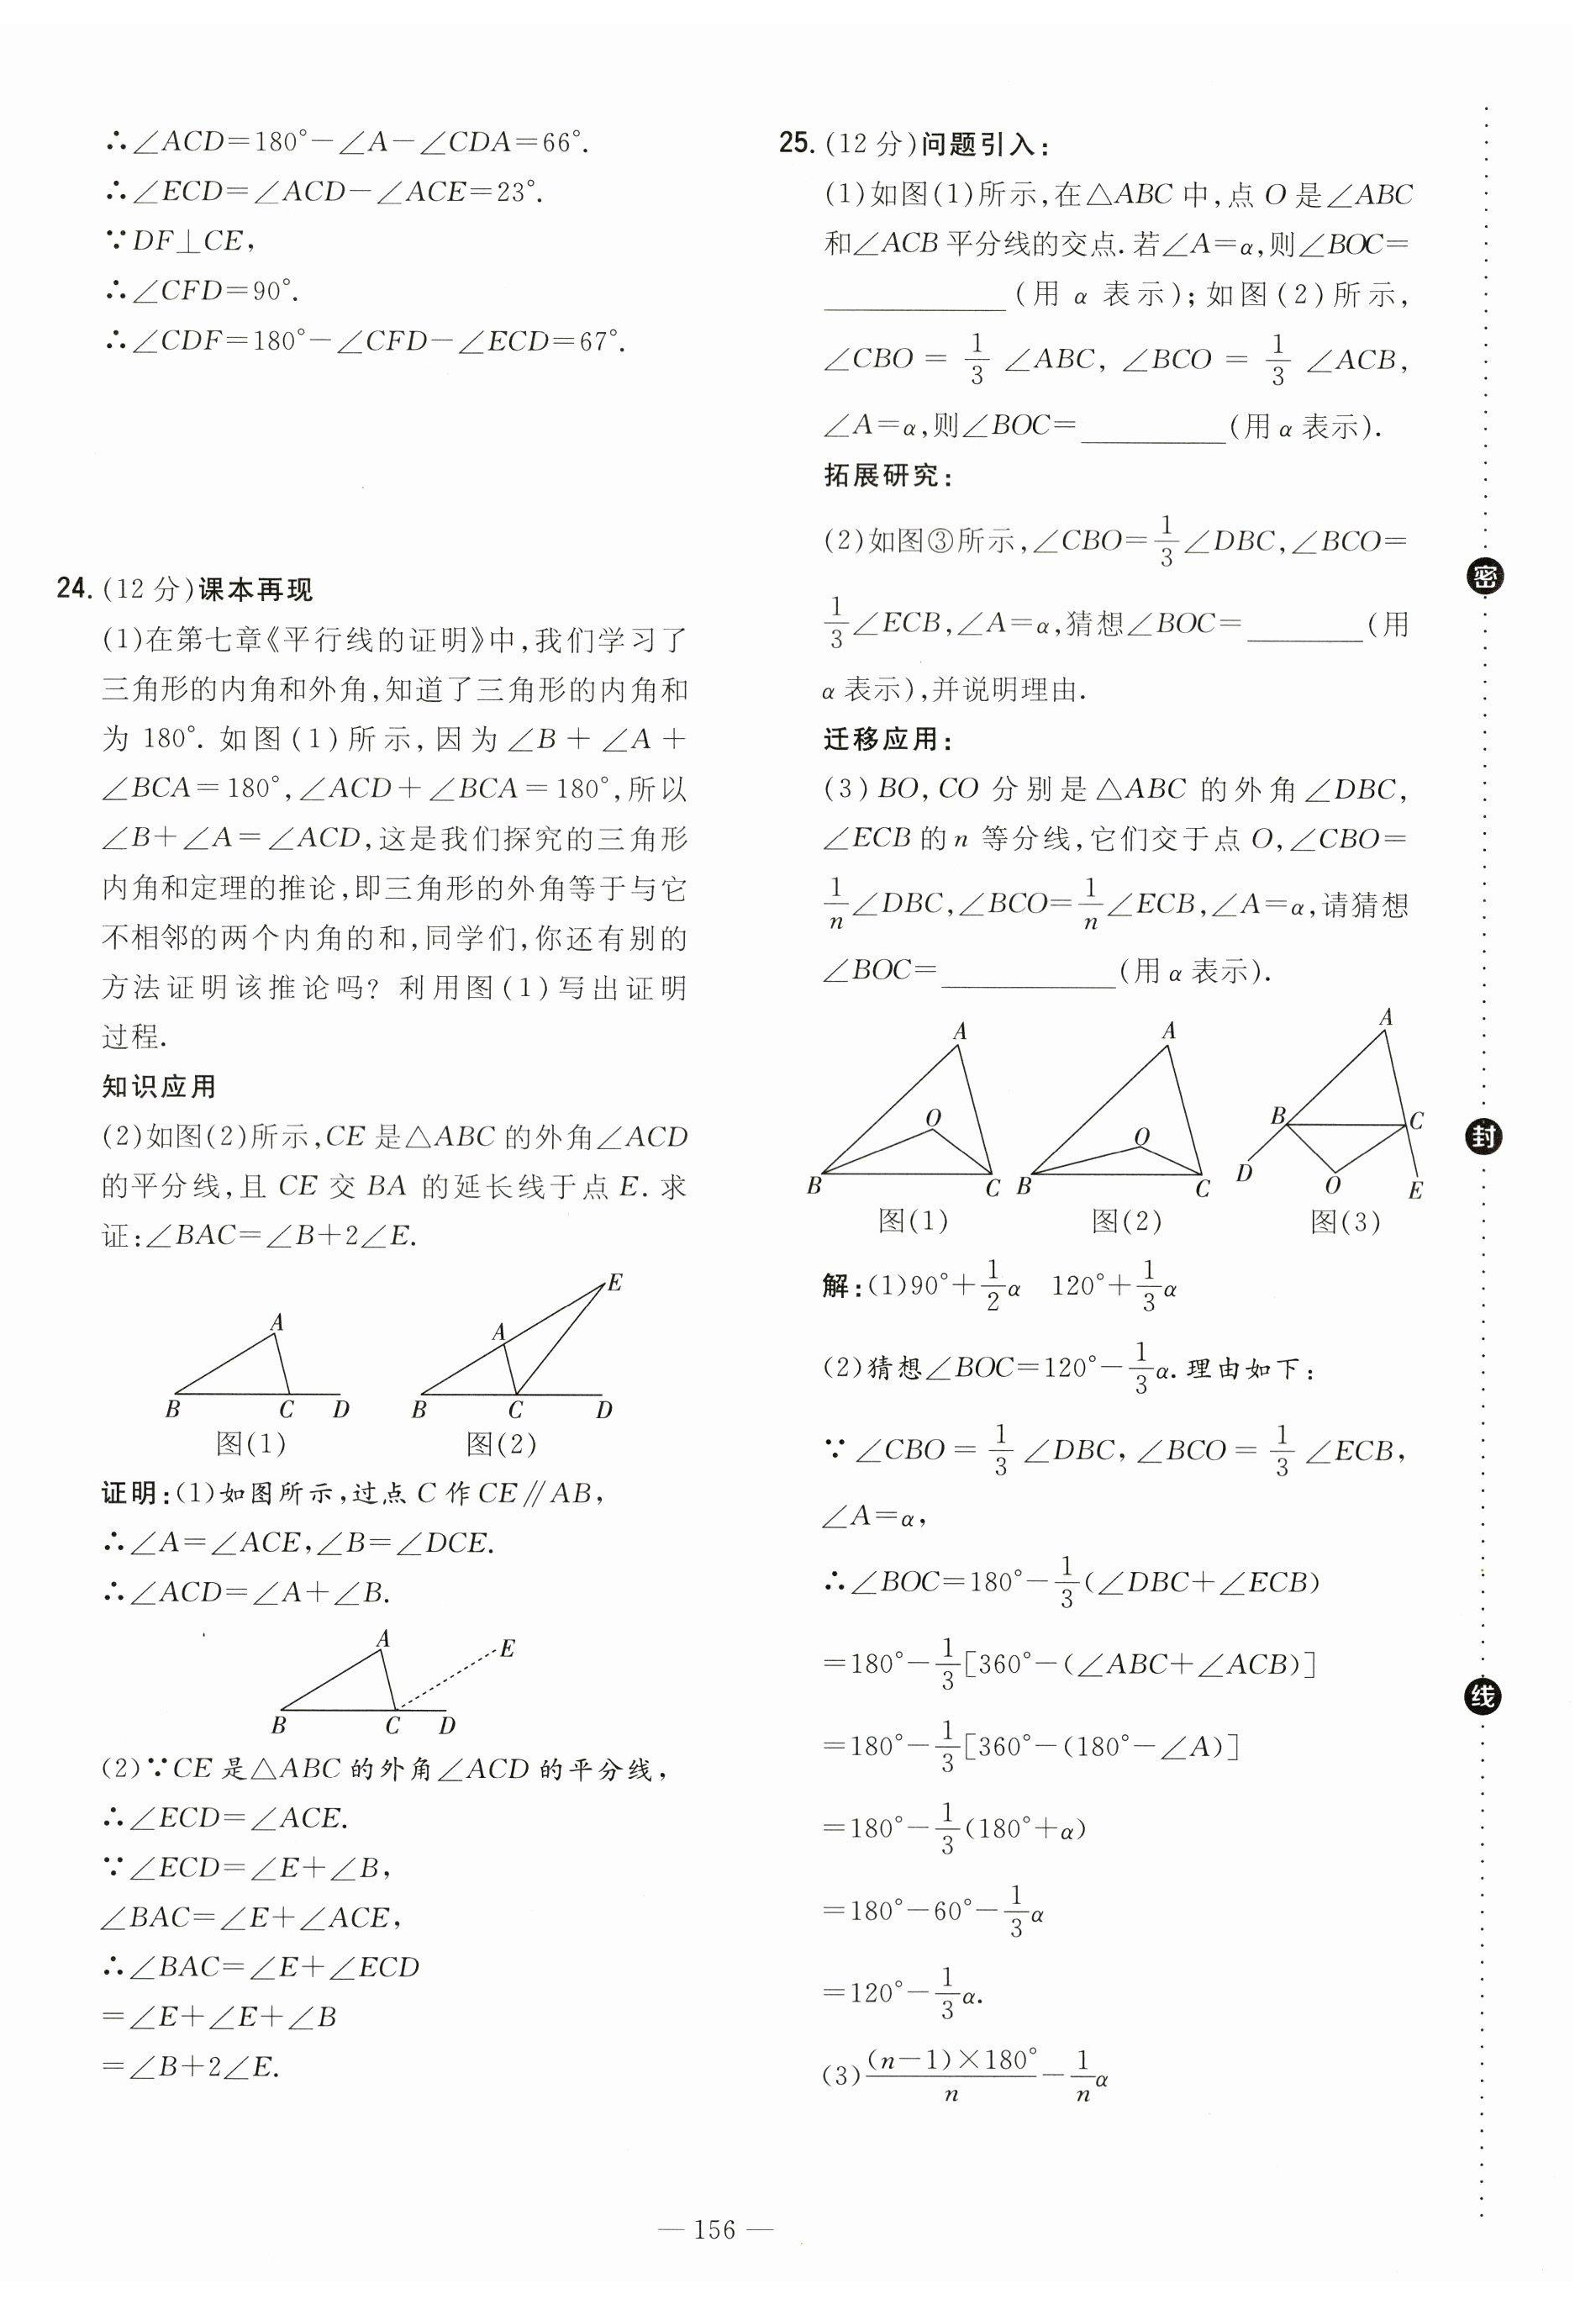 ∴∠ACD=180°-∠A-∠CDA=66°.
∴∠ECD=∠ACD-∠ACE=23°.
∵DF⊥CE,
∴∠CFD=90°.
∴∠CDF=180°-∠CFD-∠ECD=67°.
24. (12 分)课本再现
(1)在第七章《平行线的证明》中,我们学习了
三角形的内角和外角,知道了三角形的内角和
为 180°. 如图(1)所示,因为∠B+∠A+
∠BCA=180°,∠ACD+∠BCA=180°,所以
∠B+∠A=∠ACD,这是我们探究的三角形
内角和定理的推论,即三角形的外角等于与它
不相邻的两个内角的和,同学们,你还有别的
方法证明该推论吗? 利用图(1)写出证明
过程.
知识应用
(2)如图(2)所示,CE 是△ABC 的外角∠ACD
的平分线,且 CE 交 BA 的延长线于点 E. 求
证:∠BAC=∠B+2∠E.
A
B C D
图(1)
E
A
B C D
图(2)
证明:(1)如图所示,过点 C 作 CE∥AB,
∴∠A=∠ACE,∠B=∠DCE.
∴∠ACD=∠A+∠B.
A
E
B C D
(2)∵CE 是△ABC 的外角∠ACD 的平分线,
∴∠ECD=∠ACE.
∵∠ECD=∠E+∠B,
∠BAC=∠E+∠ACE,
∴∠BAC=∠E+∠ECD
=∠E+∠E+∠B
=∠B+2∠E.
25. (12 分)问题引入:
(1)如图(1)所示,在△ABC 中,点 O 是∠ABC
和∠ACB 平分线的交点. 若∠A=α,则∠BOC=
____________(用 α 表示);如图(2)所示,
∠CBO = 1/3 ∠ABC, ∠BCO = 1/3 ∠ACB,
∠A=α,则∠BOC=__________(用 α 表示).
拓展研究:
(2)如图③所示,∠CBO=1/3∠DBC,∠BCO=
1/3∠ECB,∠A=α,猜想∠BOC=________(用
α 表示),并说明理由.
迁移应用:
(3) BO, CO 分别是△ABC 的外角∠DBC,
∠ECB 的 n 等分线,它们交于点 O,∠CBO=
1/n∠DBC,∠BCO=1/n∠ECB,∠A=α,请猜想
∠BOC=____________(用 α 表示).
A
O
B C
图(1)
A
O
B C
图(2)
A
B C
D O E
图(3)
解:(1)90°+1/2α 120°+1/3α
(2)猜想∠BOC=120°-1/3α. 理由如下:
∵∠CBO = 1/3 ∠DBC, ∠BCO = 1/3 ∠ECB,
∠A=α,
∴∠BOC=180°-1/3(∠DBC+∠ECB)
=180°-1/3[360°-(∠ABC+∠ACB)]
=180°-1/3[360°-(180°-∠A)]
=180°-1/3(180°+α)
=180°-60°-1/3α
=120°-1/3α.
(3)(n-1)×180°/n-1/nα
密
封
线
— 156 —